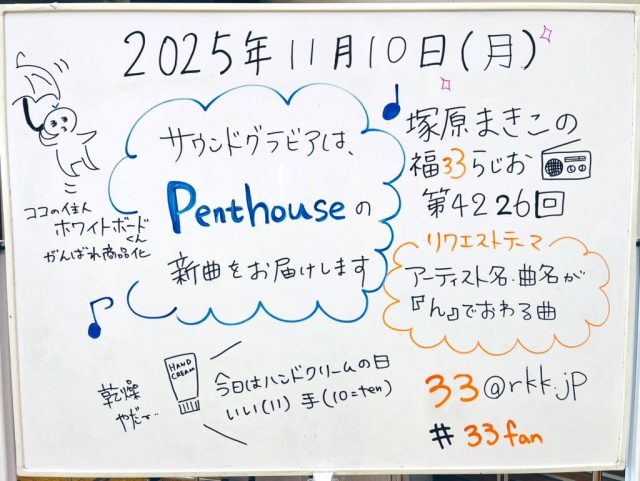 2025年11月10日(月)
サウンドグラビアは、
Penthouseの
新曲をお届けします
塚原まきこの
福33らじお
第4226回
ココの住人
ホワイトボード
くん
がんばれ商品化
リクエストテーマ
アーティスト名・曲名が
『ん』でおわる曲
乾燥
やだで〜
HAND
CREAM
今日はハンドクリームの日
いい(11) 手(10=ten)
33@rkk.jp
#33fan